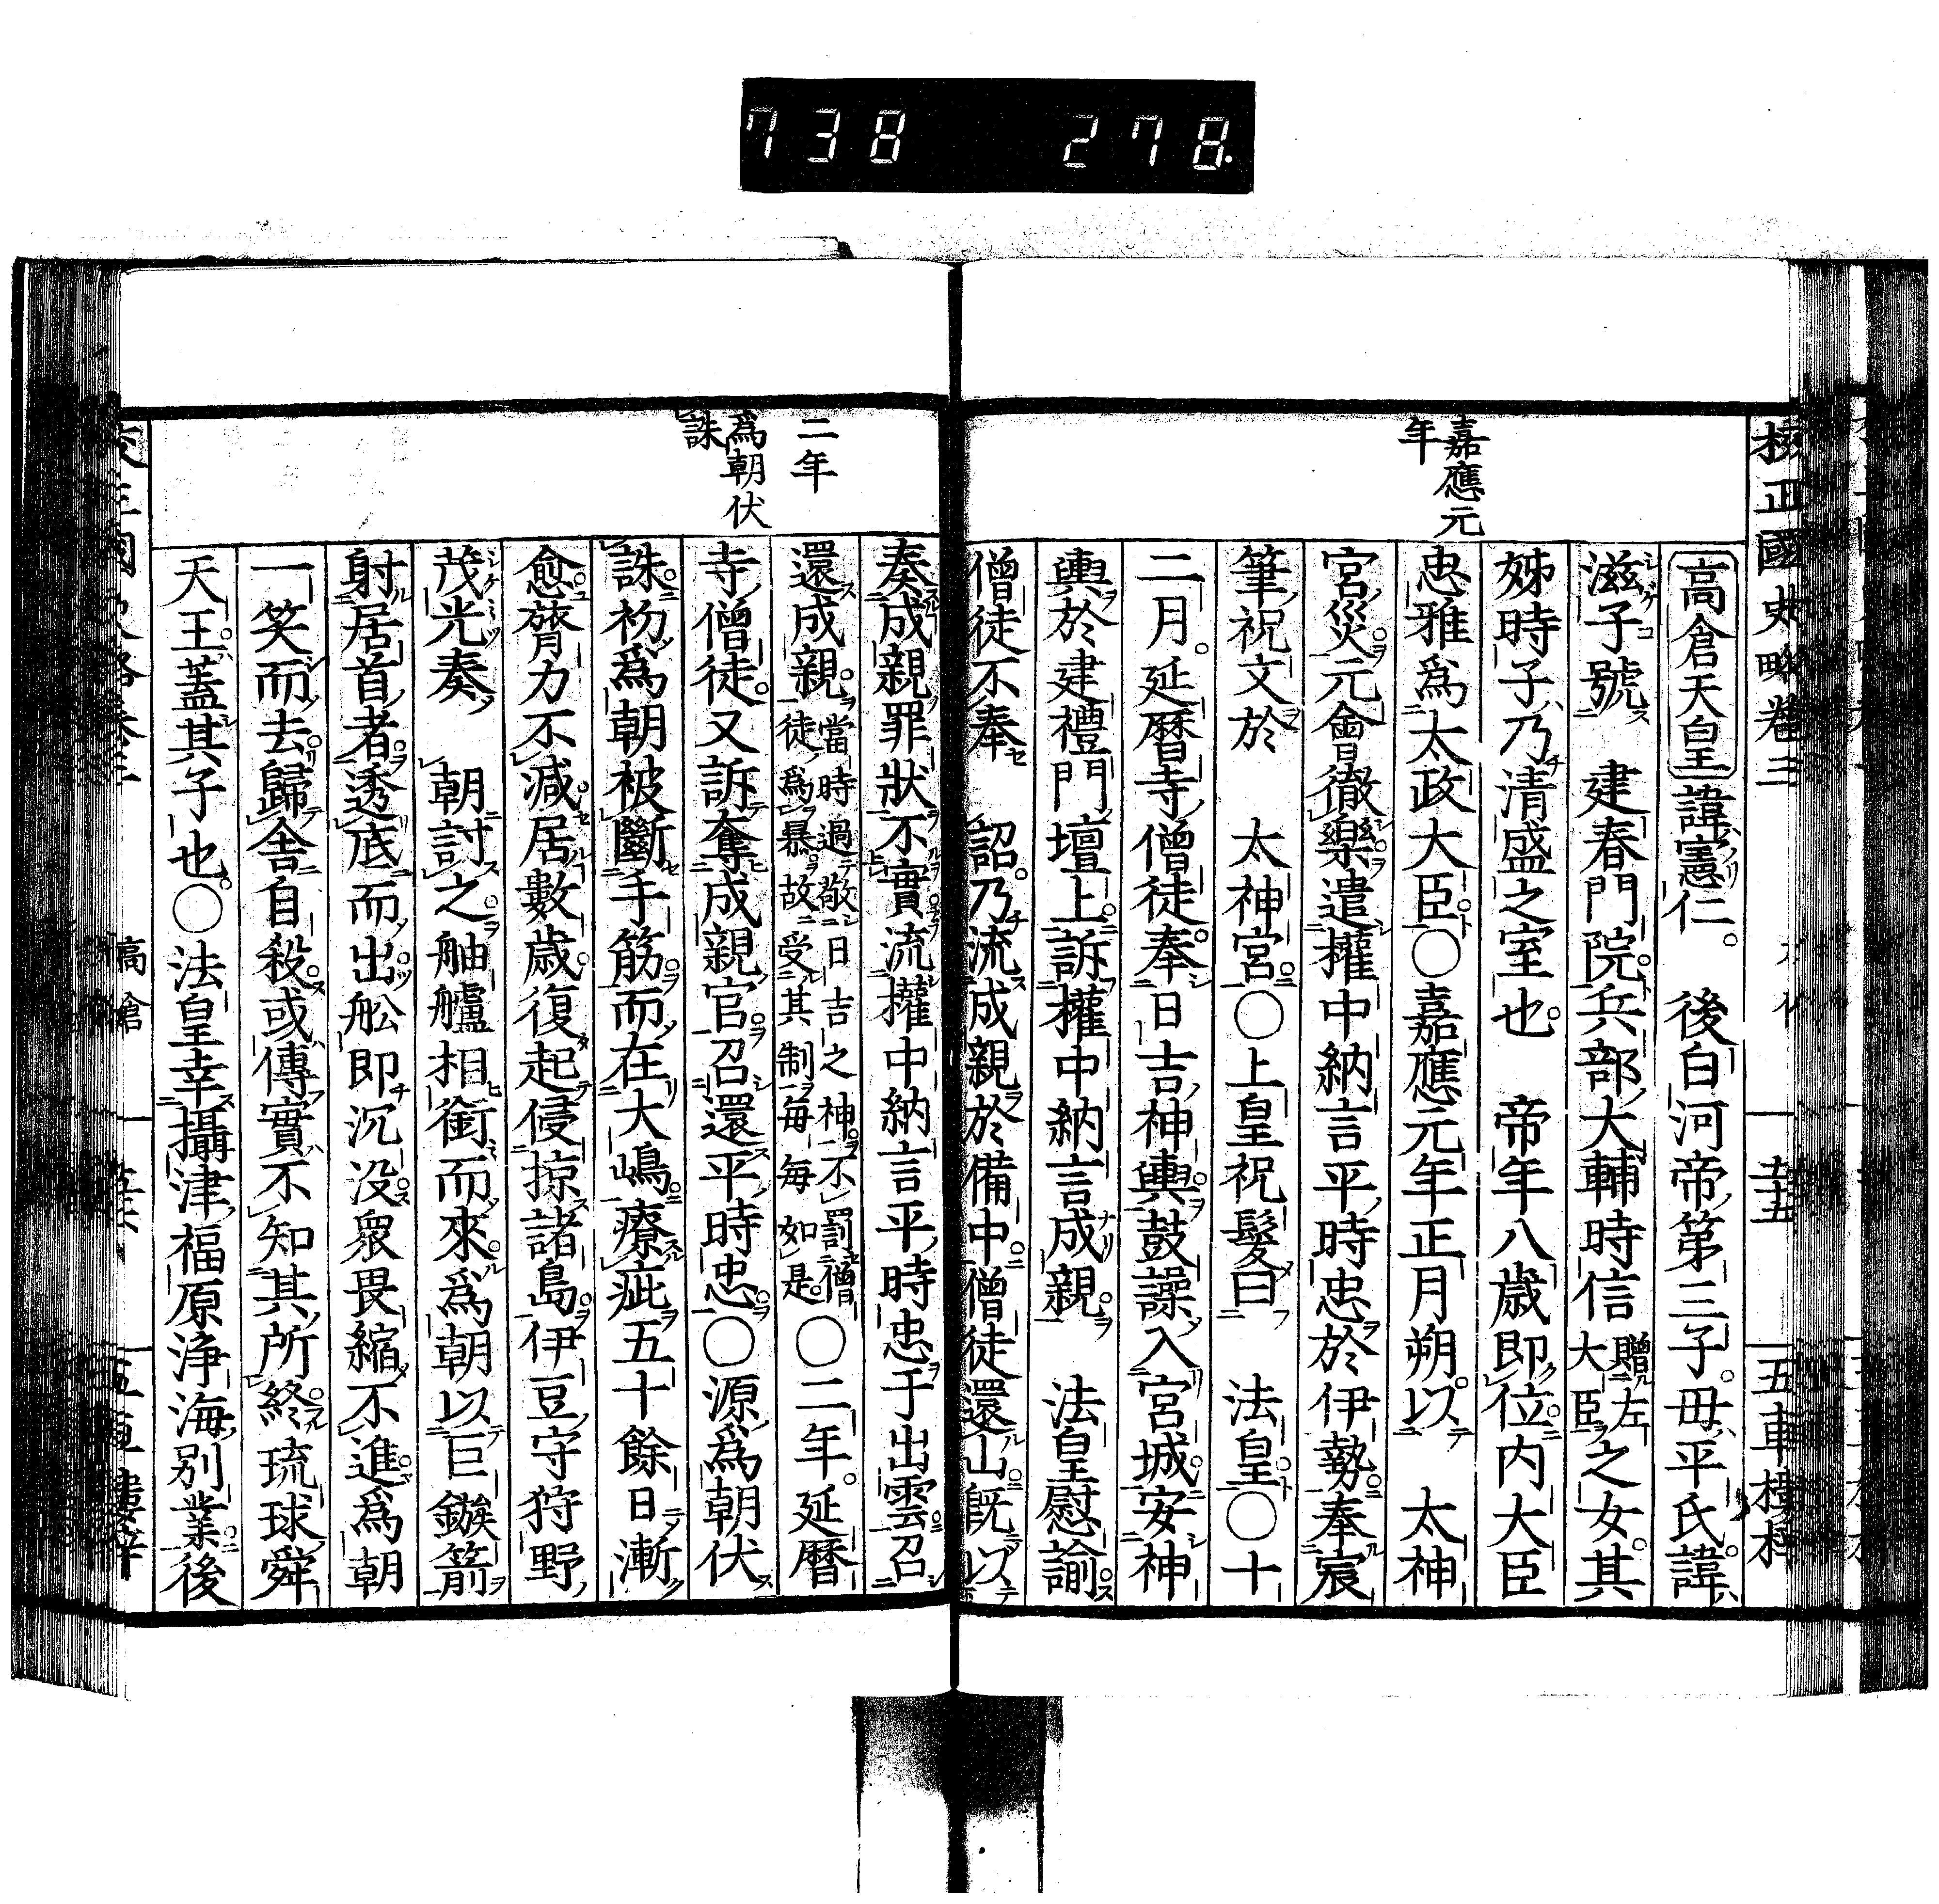 738 278
校正國史略卷三
五十五
五車樓梓
嘉應元
年
高倉天皇諱憲仁。後白河帝第三子。母平氏。諱
滋子號 建春門院兵部大輔時信贈左大臣之女。其
姊時子乃清盛之室也 帝年八歲即位内大臣
忠雅爲太政大臣○嘉應元年正月朔。以 太神
宮災元會徹樂遣權中納言平時忠於伊勢奉宸
筆祝文於 太神宮○上皇祝髮曰 法皇○十
二月。延曆寺僧徒奉日吉神輿鼓譟入宮城安神
輿於建禮門壇上訴權中納言成親 法皇慰諭
僧徒不奉 詔。乃流成親於備中僧徒還山既以
二年
爲朝伏
誅
奏成親罪狀不實流權中納言平時忠于出雲召
還成親。當時過敬日吉之神不罰僧徒爲暴故受其制每每如是。○二年。延曆
寺僧徒。又訴奪成親官召還平時忠○源爲朝伏
誅初爲朝被斷手筋而在大嶋療疵五十餘日漸
愈膂力不減居數歲復起侵掠諸島伊豆守狩野
茂光奏 朝討之舳艫相銜而來爲朝以巨鏃箭
射居首者透底而出舩即沉没眾畏縮不進爲朝
一笑而去歸舍自殺或傳實不知其所終琉球舜
天王蓋其子也。○法皇幸攝津福原淨海別業後
高倉